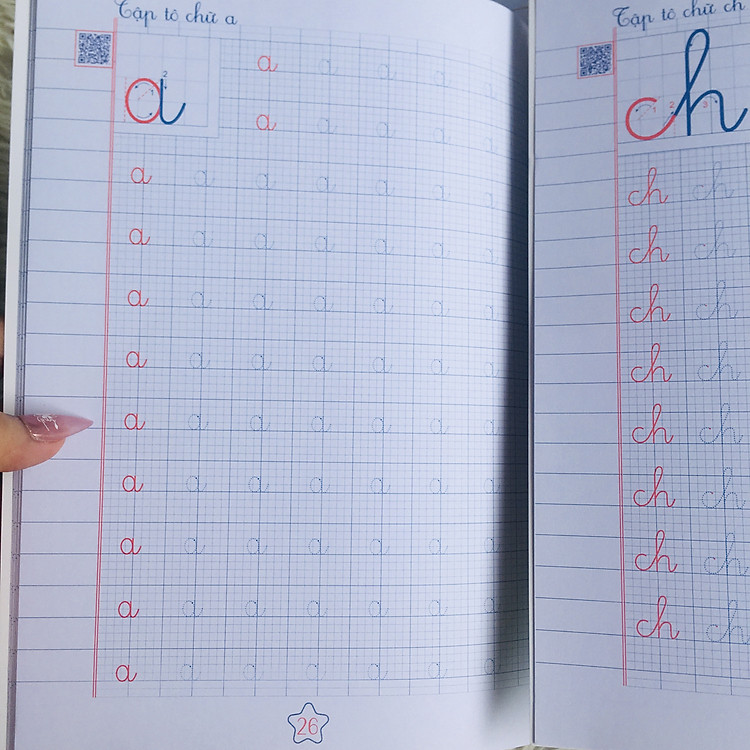 Tập tô chữ a
a
a a a a a
a a a a a
a a a a a a a
a a a a a a a
a a a a a a a
a a a a a a a
a a a a a a a
a a a a a a a
a a a a a a a
a a a a a a a
a a a a a a a
26
Tập tô chữ ch
ch
ch ch
ch ch
ch ch
ch ch
ch ch
ch ch
ch ch
ch ch